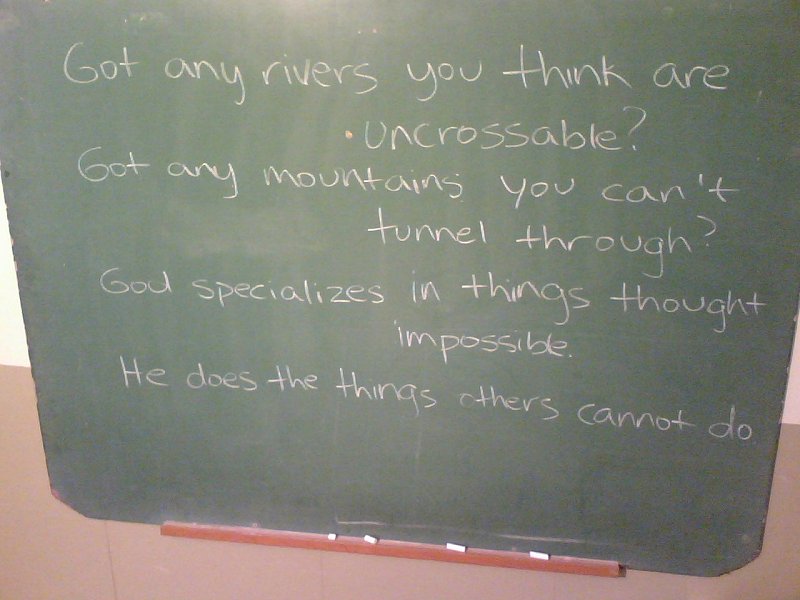 Got any rivers you think are
uncrossable?
Got any mountains you can't
tunnel through?
God specializes in things thought
impossible.
He does the things others cannot do